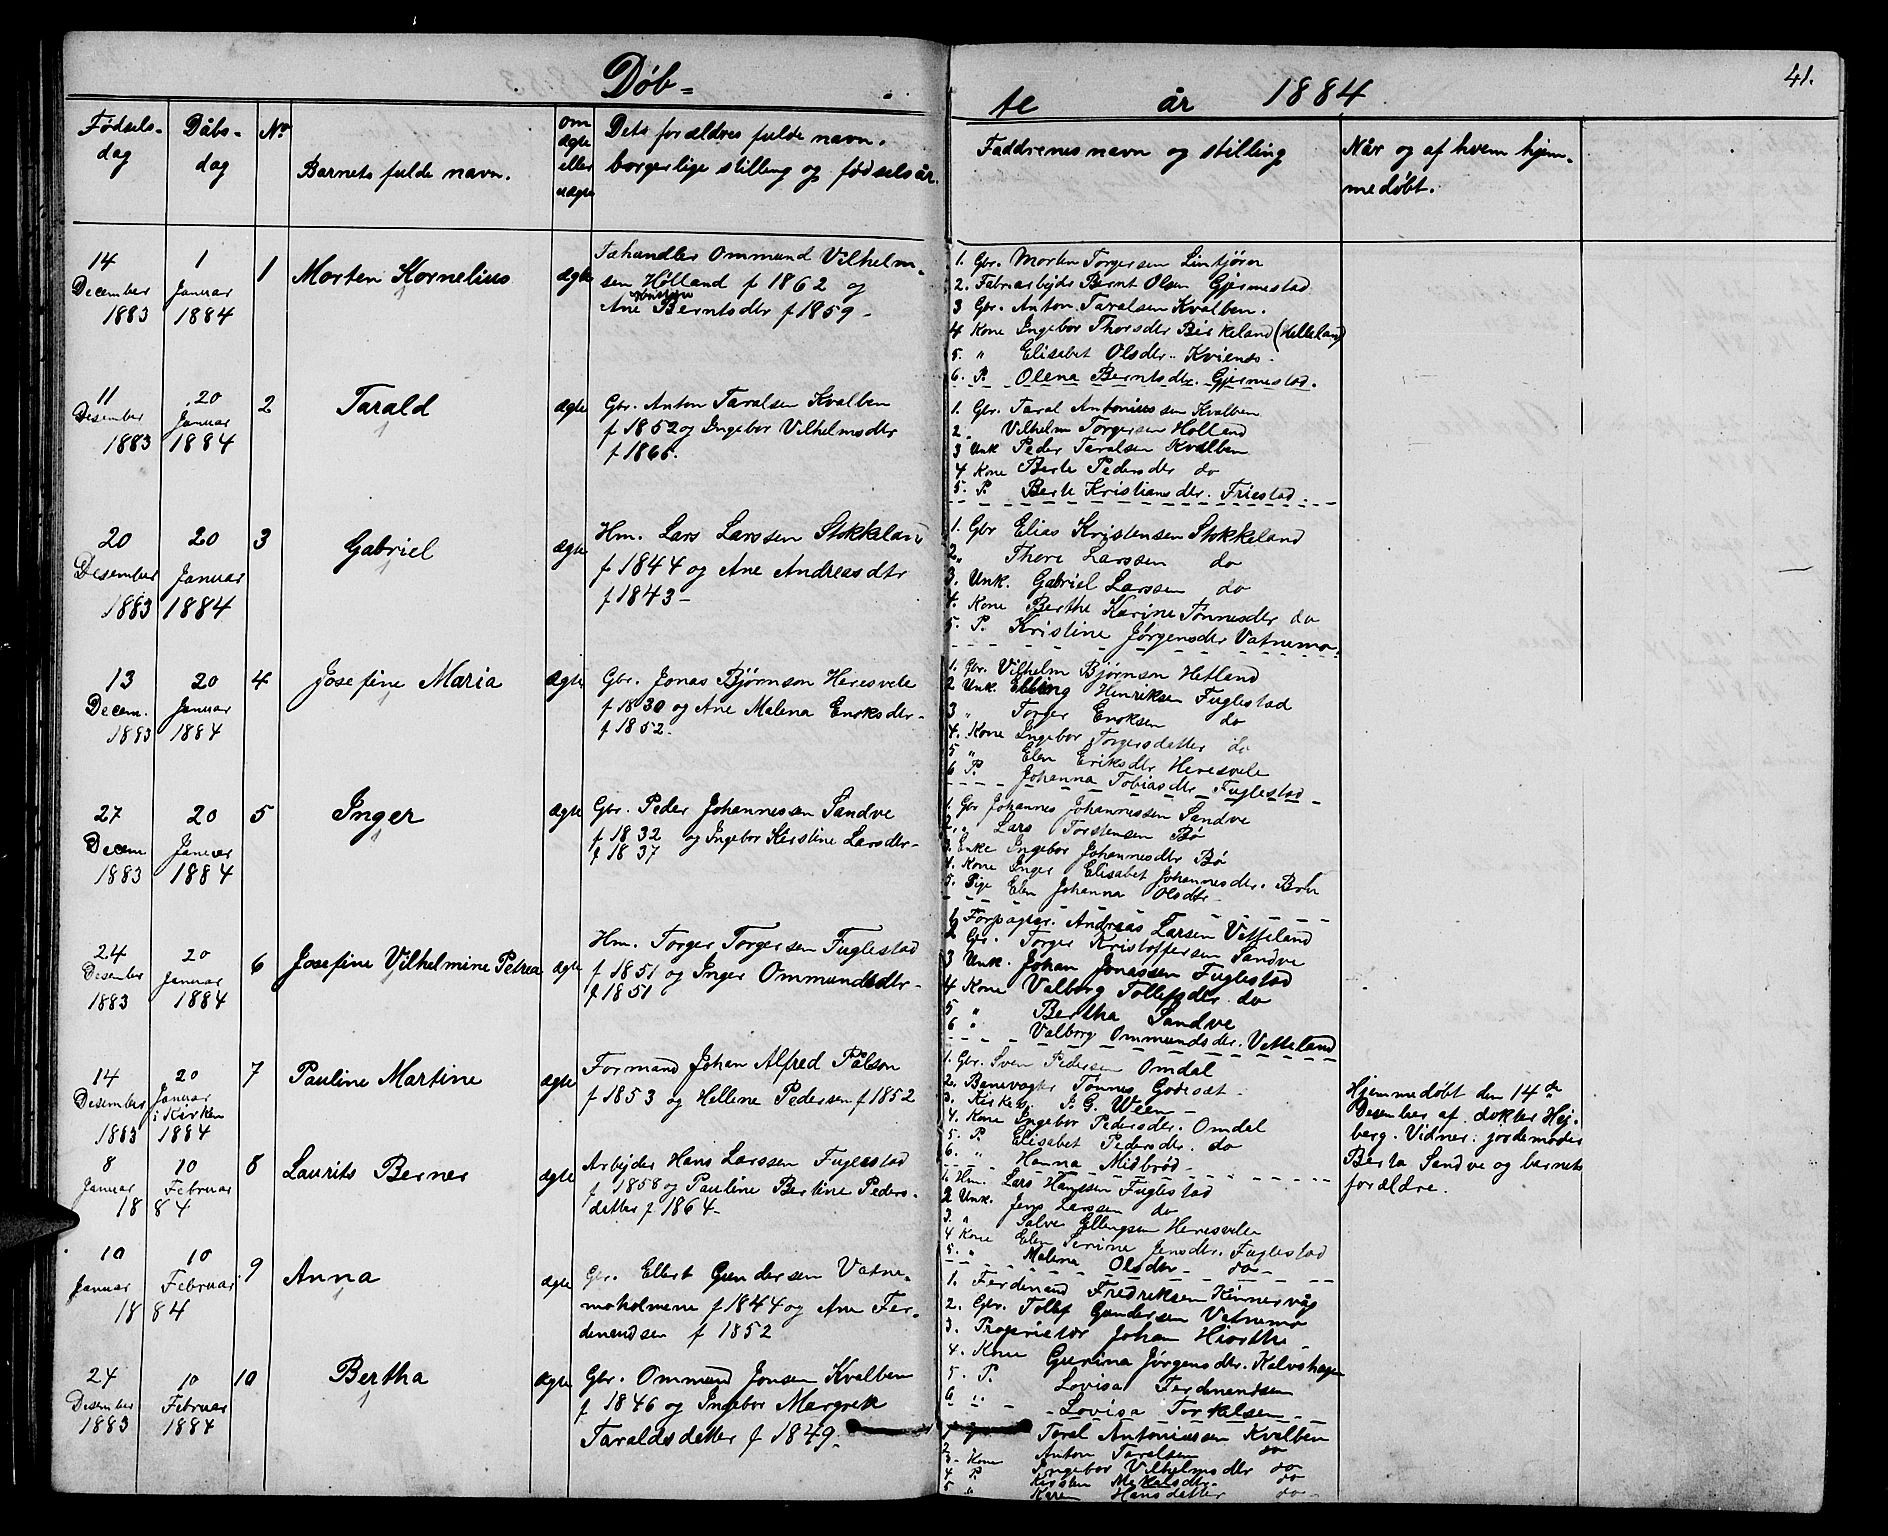 Døb-
te år 1884
41.
Fødsels-
dag
Dåbs-
dag
No
Barnets fulde navn.
om
ægte
eller
uægte
Dets forældres fulde navn.
borgerlige stilling og fødselsår.
Faddrenes navn og stilling
Når og af hvem hjem-
medøbt.
14
December
1883
1
Januar
1884
1
Morten Kornelius
ægte
Ommund Vilhelm-
sen Holland f 1862 og
Ane Berntsdtr f 1859 -
1. Gbr. Morten Torgersen
2. Bernt Olsen Gjermestad
3 Gbr. Anton Taralsen Kvalben.
4 Kone Ingebor Thorsdtr Birkeland (Helleland)
5. " Elisabet Olsdtr.
6. P. Olena Berntsdtr. Gjermestad.
11
Desember
1883
20
Januar
1884
2
Tarald
ægte
Gbr. Anton Taralsen Kvalben
f 1852 og Ingebor Vilhelmsdtr
f 1866.
1. Gbr. Taral Antoniussen Kvalben
2. Vilhelm Torgersen Holland
3 Unk Peder Taralsen Kvalben
4. Kone Berte Pedersdtr do
5. P. Berte Kristiansdtr. Friestad
20
Desember
1883
20
Januar
1884
3
Gabriel
ægte
Hm. Lars Larssen Stokkeland
f 1844 og Ane Andreasdtr
f 1843 -
1. Gbr Elias Kristensen Stokkeland
2. " Thore Larssen do
3. Unk. Gabriel Larssen do
4. Kone Berthe Karine Tønnesdtr do
5. P. Kristine Jørgensdtr Vatnemo.
13
Decem.
1883
20
Januar
1884
4
Josefine Maria
ægte
Gbr. Jonas Bjørnson Heresvele
f 1830 og Ane Malena Eriksdtr -
f 1852.
1. Gbr. Vilhelm Bjørnson Hetland
2 Unk. Elling Henriksen Fuglestad
3 " Torger Eriksen do
4. Kone Ingebor Torgersdatter do
5 " Elen Eriksdtr Heresvele
6 P. Johanna Tobiasdtr Fuglestad -
27
Decem
1883
20
Januar
1884
5
Inger
ægte
Gbr. Peder Johannessen Sandve
f 1832 og Ingebor Kirstine Larsdtr -
f 1837
1. Gbr Johannes Johannessen Sandve
2. " Lars Torstensen Bø
3. Enke Ingebor Johannesdtr Bø
4. Kone Inger Elisabet Johannesdtr.
5. Pige Elen Johanna Olsdtr -
24
Desember
1883
20
Januar
1884
6
Josefine Vilhelmine Petrea
ægte
Hm. Torger Torgersen Fuglestad
f 1851 og Inger Ommundsdtr -
f 1851
1 Forpagter. Andreas Larsen Vetteland
2 Gbr. Torger Kristoffersen Sandve
3 Unk. Johan Jonassen Fuglestad
4 Kone Valborg Tollefsdtr. do
5 " Bertha Sandve
6 " Valborg Ommundsdtr. Vetteland
14
Desember
1883
20
Januar
i Kirken
1884
7
Pauline Martine
ægte
Formand Johan Alfred Pålson
f 1853 og Hellene Pedersen f 1852
1. Gbr. Sven Pedersen Omdal
2. Banevogter Tønnes Godeset -
3. Kirkes. P. G. Ween -
4. Kone Ingebor Pedersdtr. Omdal
5. P. Elisabet Pedersdtr. do
6. " Hanna Midbrød -
Hjemmedøbt den 14de
Desember af dokter Hej-
berg. Vidner: jordemoder
Berta Sandve og barnets
forældre.
8
Januar
1884
10
Februar
8
Laurits Berner
ægte
Arbejder Hans Larssen Fuglestad
f 1858 og Pauline Bertine Peders-
datter f 1864 -
1. Hm. Lars Hanssen Fuglestad
2 Unk. Jens Larssen do
3. " Salve Ellingsen Heresvele
4 Kone Elen Serine Jensdtr. Fuglestad
5. " Malena Olsdtr - do -
10
Januar
1884
10
Februar
9
Anna
ægte
Gbr. Ellert Gundersen Vatne-
moholmene f 1844 og Ane Fer-
dinandsen f 1852
1. Ferdinand Fredriksen Kinnervåg
2. Gbr. Tollef Gundersen Vatnemo
3. Proprietær Johan Hiorth
4. Kone Gurina Jørgensdtr. Kelvshagen
5. P. Lovisa Ferdinandsen
6 " Lovisa Torkelsen
24
Desember
1883
10
Februar
1884
10
Bertha
ægte
Gbr. Ommund Jonsen Kvalben
f 1846 og Ingebor Margrete
Taraldsdatter f 1849.
1 Taral Antoniussen Kvalben
2 Anton Taralsen do
3 - Kone Ingebor Vilhelmsdtr do
4 P. Kirsten Mikalsdtr do
5 " Karen Hansdatter do -